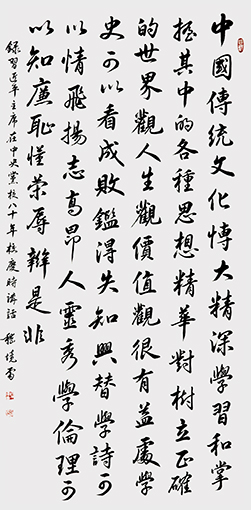 中國傳統文化博大精深學習和掌
握其中的各種思想精華對樹立正確
的世界觀人生觀價值觀很有益處學
史可以看成敗鑑得失知興替學詩可
以情飛揚志高昂人靈秀學倫理可
以知廉恥懂榮辱辦是非
錄習近平主席在中央黨校八十年校慶時講話